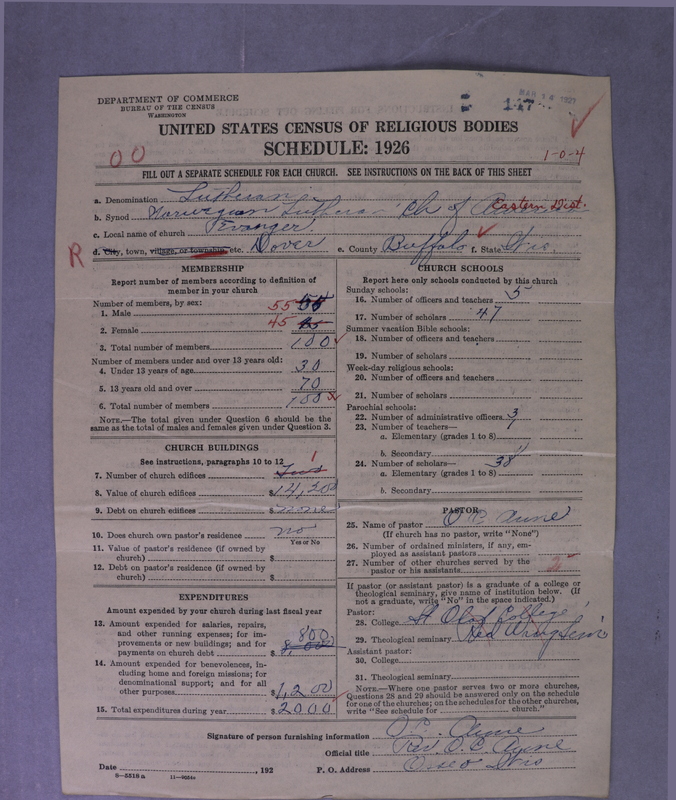 DEPARTMENT OF COMMERCE
BUREAU OF THE CENSUS
WASHINGTON
MAR 1927
UNITED STATES CENSUS OF RELIGIOUS BODIES
SCHEDULE: 1926
00
1-0-4
FILL OUT A SEPARATE SCHEDULE FOR EACH CHURCH. SEE INSTRUCTIONS ON THE BACK OF THIS SHEET
a. Denomination Lutheran
b. Synod Norwegian Luthern Ch of Eastern Dist.
c. Local name of church Evanger
R d. City, town, village, or township, etc. Dover e. County Buffalo f. State Wis.
MEMBERSHIP
Report number of members according to definition of
member in your church
Number of members, by sex:
1. Male 55
2. Female 45
3. Total number of members 100
Number of members under and over 13 years old:
4. Under 13 years of age 30
5. 13 years old and over 70
6. Total number of members 100
NOTE.—The total given under Question 6 should be the
same as the total of males and females given under Question 3.
CHURCH BUILDINGS
See instructions, paragraphs 10 to 12
7. Number of church edifices 1
8. Value of church edifices $14,200
9. Debt on church edifices $ none
10. Does church own pastor's residence no
Yes or No
11. Value of pastor's residence (if owned by
church) $
12. Debt on pastor's residence (if owned by
church) $
EXPENDITURES
Amount expended by your church during last fiscal year
13. Amount expended for salaries, repairs,
and other running expenses; for im-
provements or new buildings; and for
payments on church debt $ 800
14. Amount expended for benevolences, in-
cluding home and foreign missions; for
denominational support; and for all
other purposes $1,200
15. Total expenditures during year $2000
CHURCH SCHOOLS
Report here only schools conducted by this church
Sunday schools:
16. Number of officers and teachers 5
17. Number of scholars 47
Summer vacation Bible schools:
18. Number of officers and teachers
19. Number of scholars
Week-day religious schools:
20. Number of officers and teachers
21. Number of scholars
Parochial schools:
22. Number of administrative officers 3
23. Number of teachers—
a. Elementary (grades 1 to 8)
b. Secondary
24. Number of scholars— 38
a. Elementary (grades 1 to 8)
b. Secondary
PASTOR
25. Name of pastor O C Aune
(If church has no pastor, write "None")
26. Number of ordained ministers, if any, em-
ployed as assistant pastors
27. Number of other churches served by the
pastor or his assistants
If pastor (or assistant pastor) is a graduate of a college or
theological seminary, give name of institution below. (If
not a graduate, write "No" in the space indicated.)
Pastor:
28. College St Olaf College
29. Theological seminary Red Wing Sem
Assistant pastor:
30. College
31. Theological seminary
NOTE.—Where one pastor serves two or more churches,
Questions 28 and 29 should be answered only on the schedule
for one of the churches; on the schedules for the other churches,
write "See schedule for church."
Signature of person furnishing information O. C. Aune
Official title Rev. O. C. Aune
Date , 192 P. O. Address Osseo Wis
8—5518a 11—9054